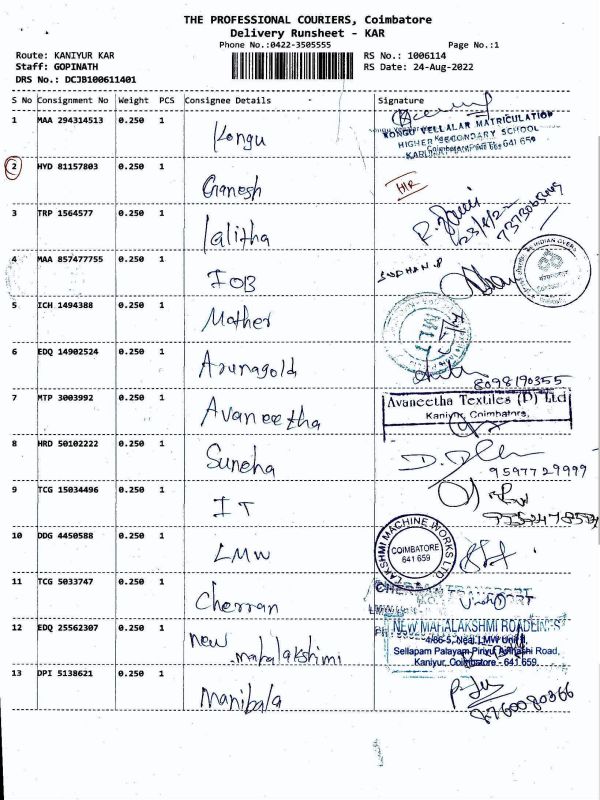 THE PROFESSIONAL COURIERS, Coimbatore
Delivery Runsheet - KAR
Phone No.:0422-3505555
Page No.:1
Route: KANIYUR KAR
RS No.: 1006114
Staff: GOPINATH
RS Date: 24-Aug-2022
DRS No.: DCJB100611401
S No Consignment No Weight PCS Consignee Details Signature
1 MAA 294314513 0.250 1 Kongu
KONGU VELLALAR MATRICULATION
HIGHER SECONDARY SCHOOL
641 659
2 HYD 81157803 0.250 1 Ganesh
3 TRP 1564577 0.250 1 lalitha
23/8/22
7373065449
4 MAA 857477755 0.250 1 IOB
SUDHAN.P
INDIAN OVERS
5 ICH 1494388 0.250 1 Mather
MLT
6 EDQ 14902524 0.250 1 Arunagold
8098190355
7 MTP 3003992 0.250 1 Avaneetha
Avaneetha Textiles (P) Ltd
Kaniyur, Coimbatore,
8 HRD 50102222 0.250 1 Suneha
9597729999
9 TCG 15034496 0.250 1 IT
10 DDG 4450588 0.250 1 LMW
LAKSHMI MACHINE WORKS LTD
COIMBATORE
641 659
11 TCG 5033747 0.250 1 Cherran
12 EDQ 25562307 0.250 1 New mahalakshimi
NEW MAHALAKSHMI ROADLINES
4/86-5, Near LMW Unit II,
Sellapam Palayam Pirivu, Avinashi Road,
Kaniyur, Coimbatore - 641 659.
13 DPI 5138621 0.250 1 Manibala
8760080366